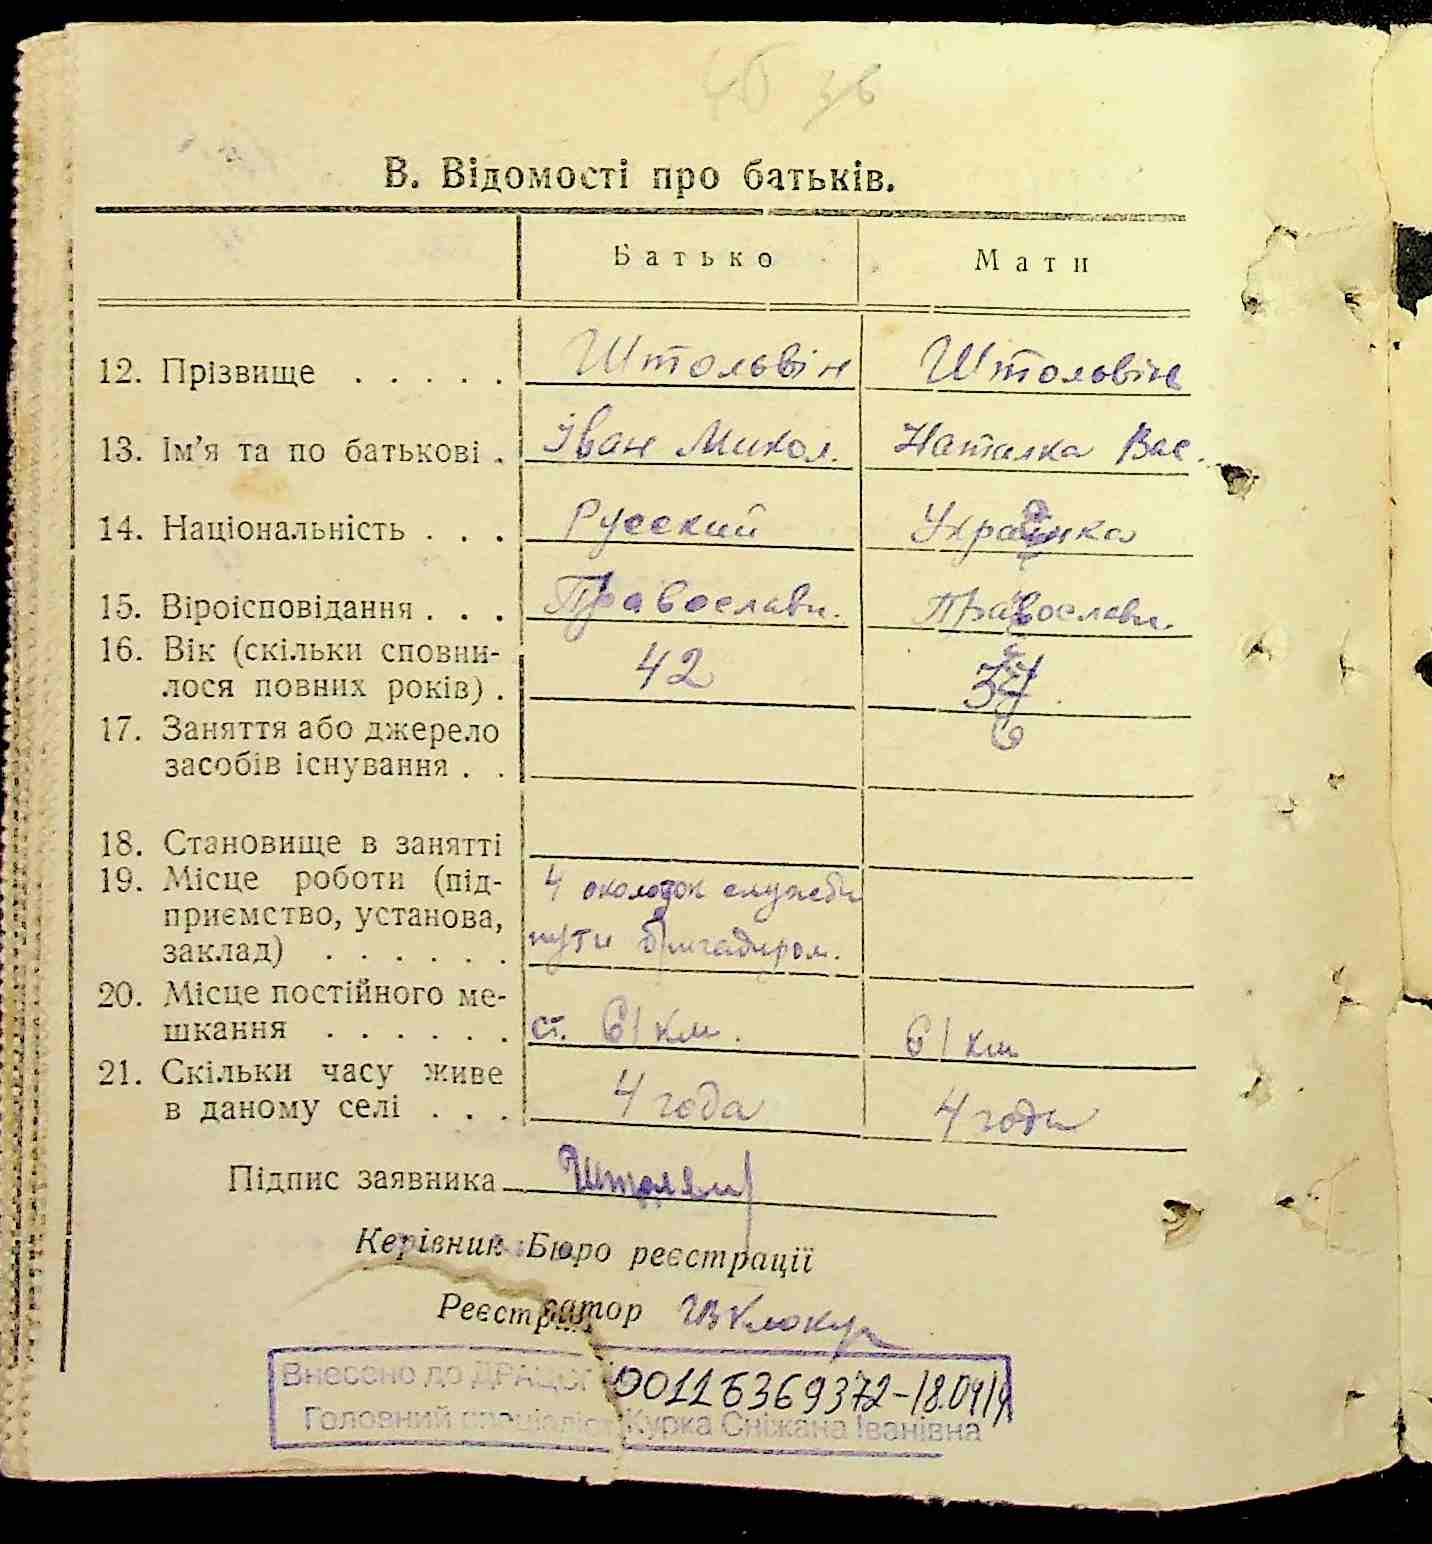 В. Відомості про батьків.
Батько Мати
12. Прізвище . . . . . Штольвін Штольвін
13. Ім'я та по батькові . Іван Микол. Наталка Вас.
14. Національність . . . Русский Українка
15. Віроісповідання . . . Православн. Православн.
16. Вік (скільки сповни-
лося повних років) . 42
17. Заняття або джерело
засобів існування . .
18. Становище в занятті
19. Місце роботи (під- 4 околоток служби
приємство, установа, пути бригадиром.
заклад) . . . . . .
20. Місце постійного ме-
шкання . . . . . . ст. 61 км. 61 км
21. Скільки часу живе
в даному селі . . . 4 года 4 годи
Підпис заявника
Керівник Бюро реєстрації
Реєстратор
Внесено до ДРАЦСГ 00116369372-18.04.19
Головний спеціаліст Курка Сніжана Іванівна